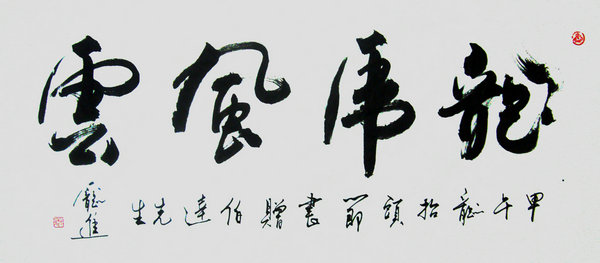 龍虎風雲
甲午龍抬頭節書贈伯達先生
進